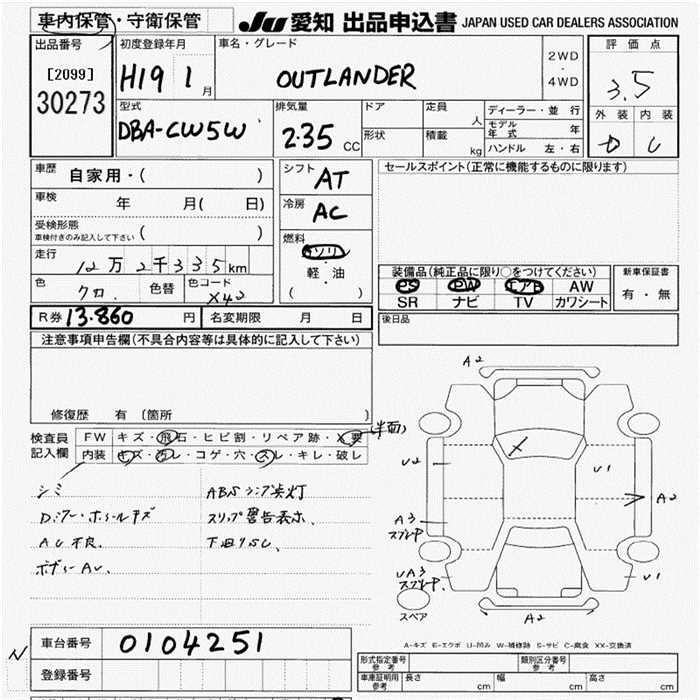 車内保管・守衛保管 JU 愛知 出品申込書 JAPAN USED CAR DEALERS ASSOCIATION
出品番号 初度登録年月 車名・グレード 評価点
[2099] H19 1月 OUTLANDER 2WD・4WD 3.5
30273
型式 排気量 ドア 定員 人 ディーラー・並行 外装 内装
DBA-CW5W 2.35 CC 形状 積載 kg モデル年式 年 D C
ハンドル 左・右
車歴 自家用・( ) シフト AT セールスポイント(正常に機能するものに限ります)
車検 年 月( 日) 冷房 AC
受検形態 ( )
車検付きのみ記入して下さい
燃料 ガソリン
走行 12万2千335km 軽・油 装備品(純正品に限り○をつけてください) 新車保証書
色 クロ. 色替 色コード X42 ( ) PS PW エアB AW 有・無
SR ナビ TV カワシート
R券 13.860円 名変期限 月 日 後日品
注意事項申告欄(不具合内容等は具体的に記入して下さい)
修復歴 有 [箇所 ]
検査員 FW キズ・飛石・ヒビ割・リペア跡・X要
記入欄 内装 キズ・汚レ・コゲ・穴・スレ・キレ・破レ
シミ ABSランプ点灯
スリップ警告表示、
AC不良
A2
U2 U1
A2
A3
UA3 U1
スペア
A2
A-キズ E-エクボ U-凹み W-補修跡 S-サビ C-腐食 XX-交換済
車台番号 0104251
登録番号
N
形式指定番号 参考 類別区分番号 参考
車庫証明用 参考 長さ cm 幅 cm 高さ cm